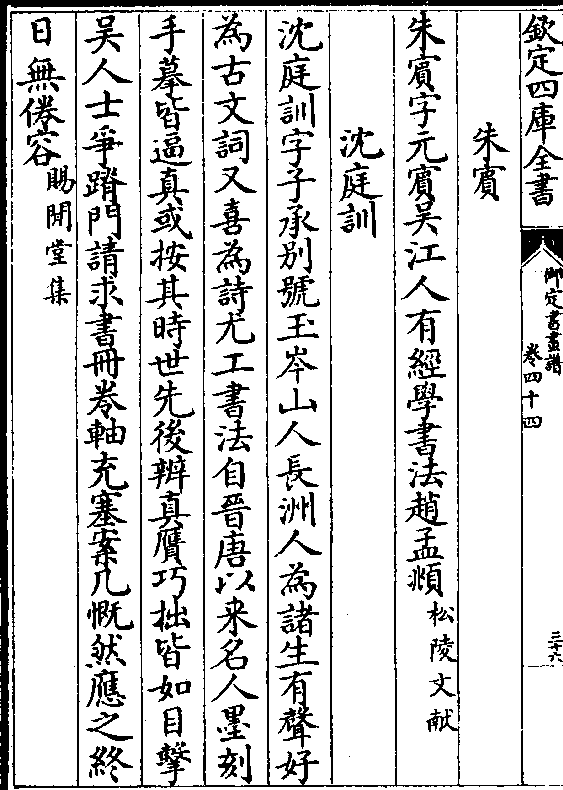 欽定四庫全書
御定書畫譜
卷四十四
三十六
朱賓
朱賓字元賓吳江人有經學書法趙孟頫松陵文献
沈庭訓
沈庭訓字子承别號玉岑山人長洲人為諸生有聲好
為古文詞又喜為詩尤工書法自晉唐以来名人墨刻
手摹皆逼真或按其時世先後辨真贋巧拙皆如目擊
吳人士爭躋門請求書冊卷軸充塞案几慨然應之終
日無倦容賜閒堂集